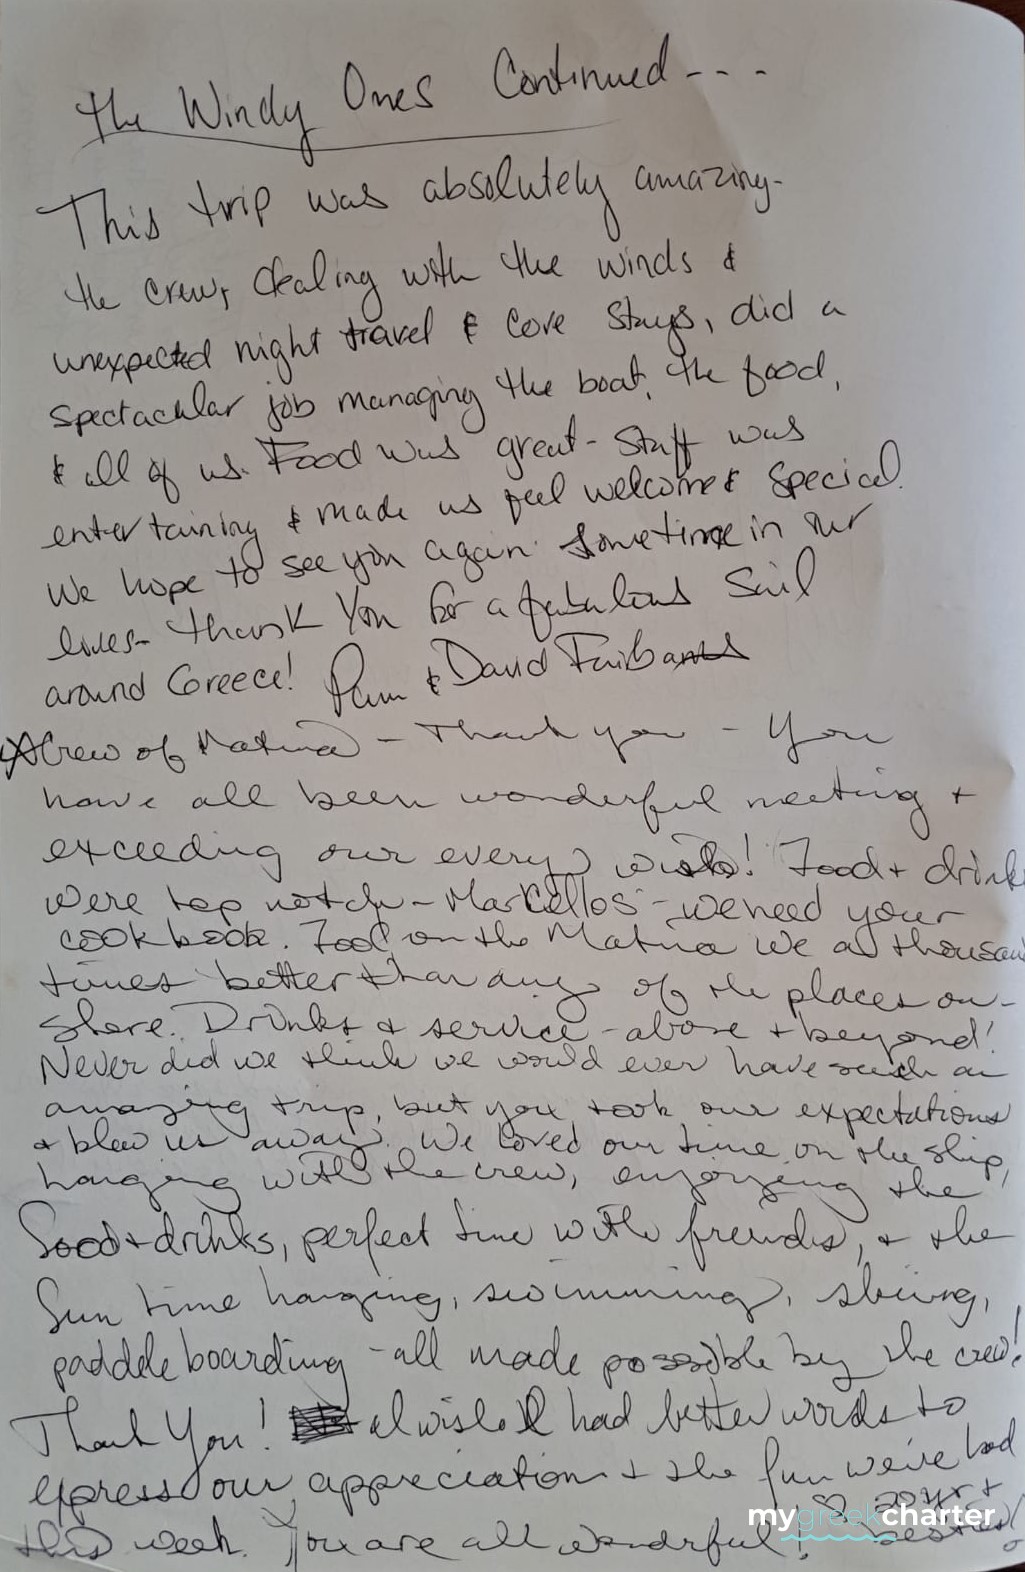 the Windy Ones Continued - - -
This trip was absolutely amazing-
the crew, dealing with the winds &
unexpected night travel & cove stays, did a
spectacular job managing the boat, the food,
& all of us. Food was great - Staff was
entertaining & made us feel welcome & special.
We hope to see you again sometime in our
lives- Thank You for a fabulous Sail
around Greece! Pam & David Fairbanks
Crew of Matina - Thank you - You
have all been wonderful meeting +
exceeding our every wish! Food + drinks
were top notch - Markellos - we need your
cookbook. Food on the Matina we a thousand
times better than any of the places on-
shore. Drinks + service - above + beyond!
Never did we think we would ever have such an
amazing trip, but you took our expectations
+ blew us away. We loved our time on the ship,
hanging with the crew, enjoying the
food + drinks, perfect time with friends, + the
Sun time hanging, swimming, skiing,
paddle boarding - all made possible by the crew!
Thank You! I wish I had better words to
express our appreciation + the fun we've had
this week. You are all wonderful!
mygreekcharter